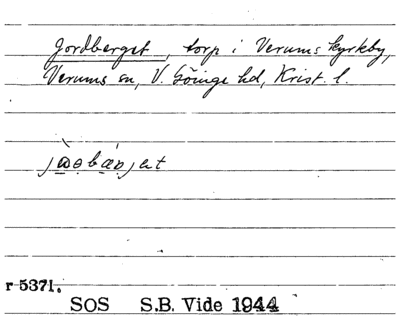 Jordberget, torp i Verums kyrkby,
Verums sn, V. Göinge hd, Krist. l.
r 5371.
SOS S.B. Vide 1944